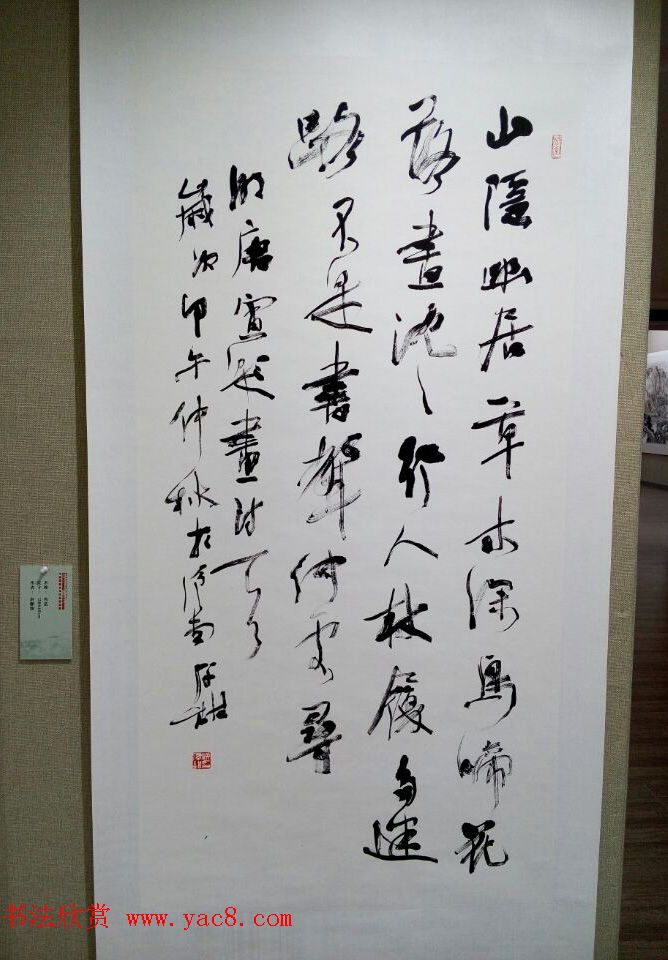 山隱幽居草木深鳥啼花
落晝沈々行人杖履多迷
路不是書聲何處尋
明唐寅題畫詩
歲次甲午仲秋於濟南
书法欣赏 www.yac8.com